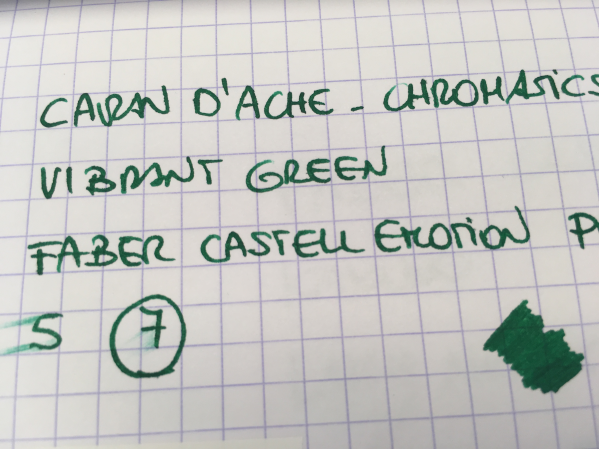 CARAN D'ACHE - CHROMATICS
VIBRANT GREEN
FABER CASTELL EMOTION
5 7